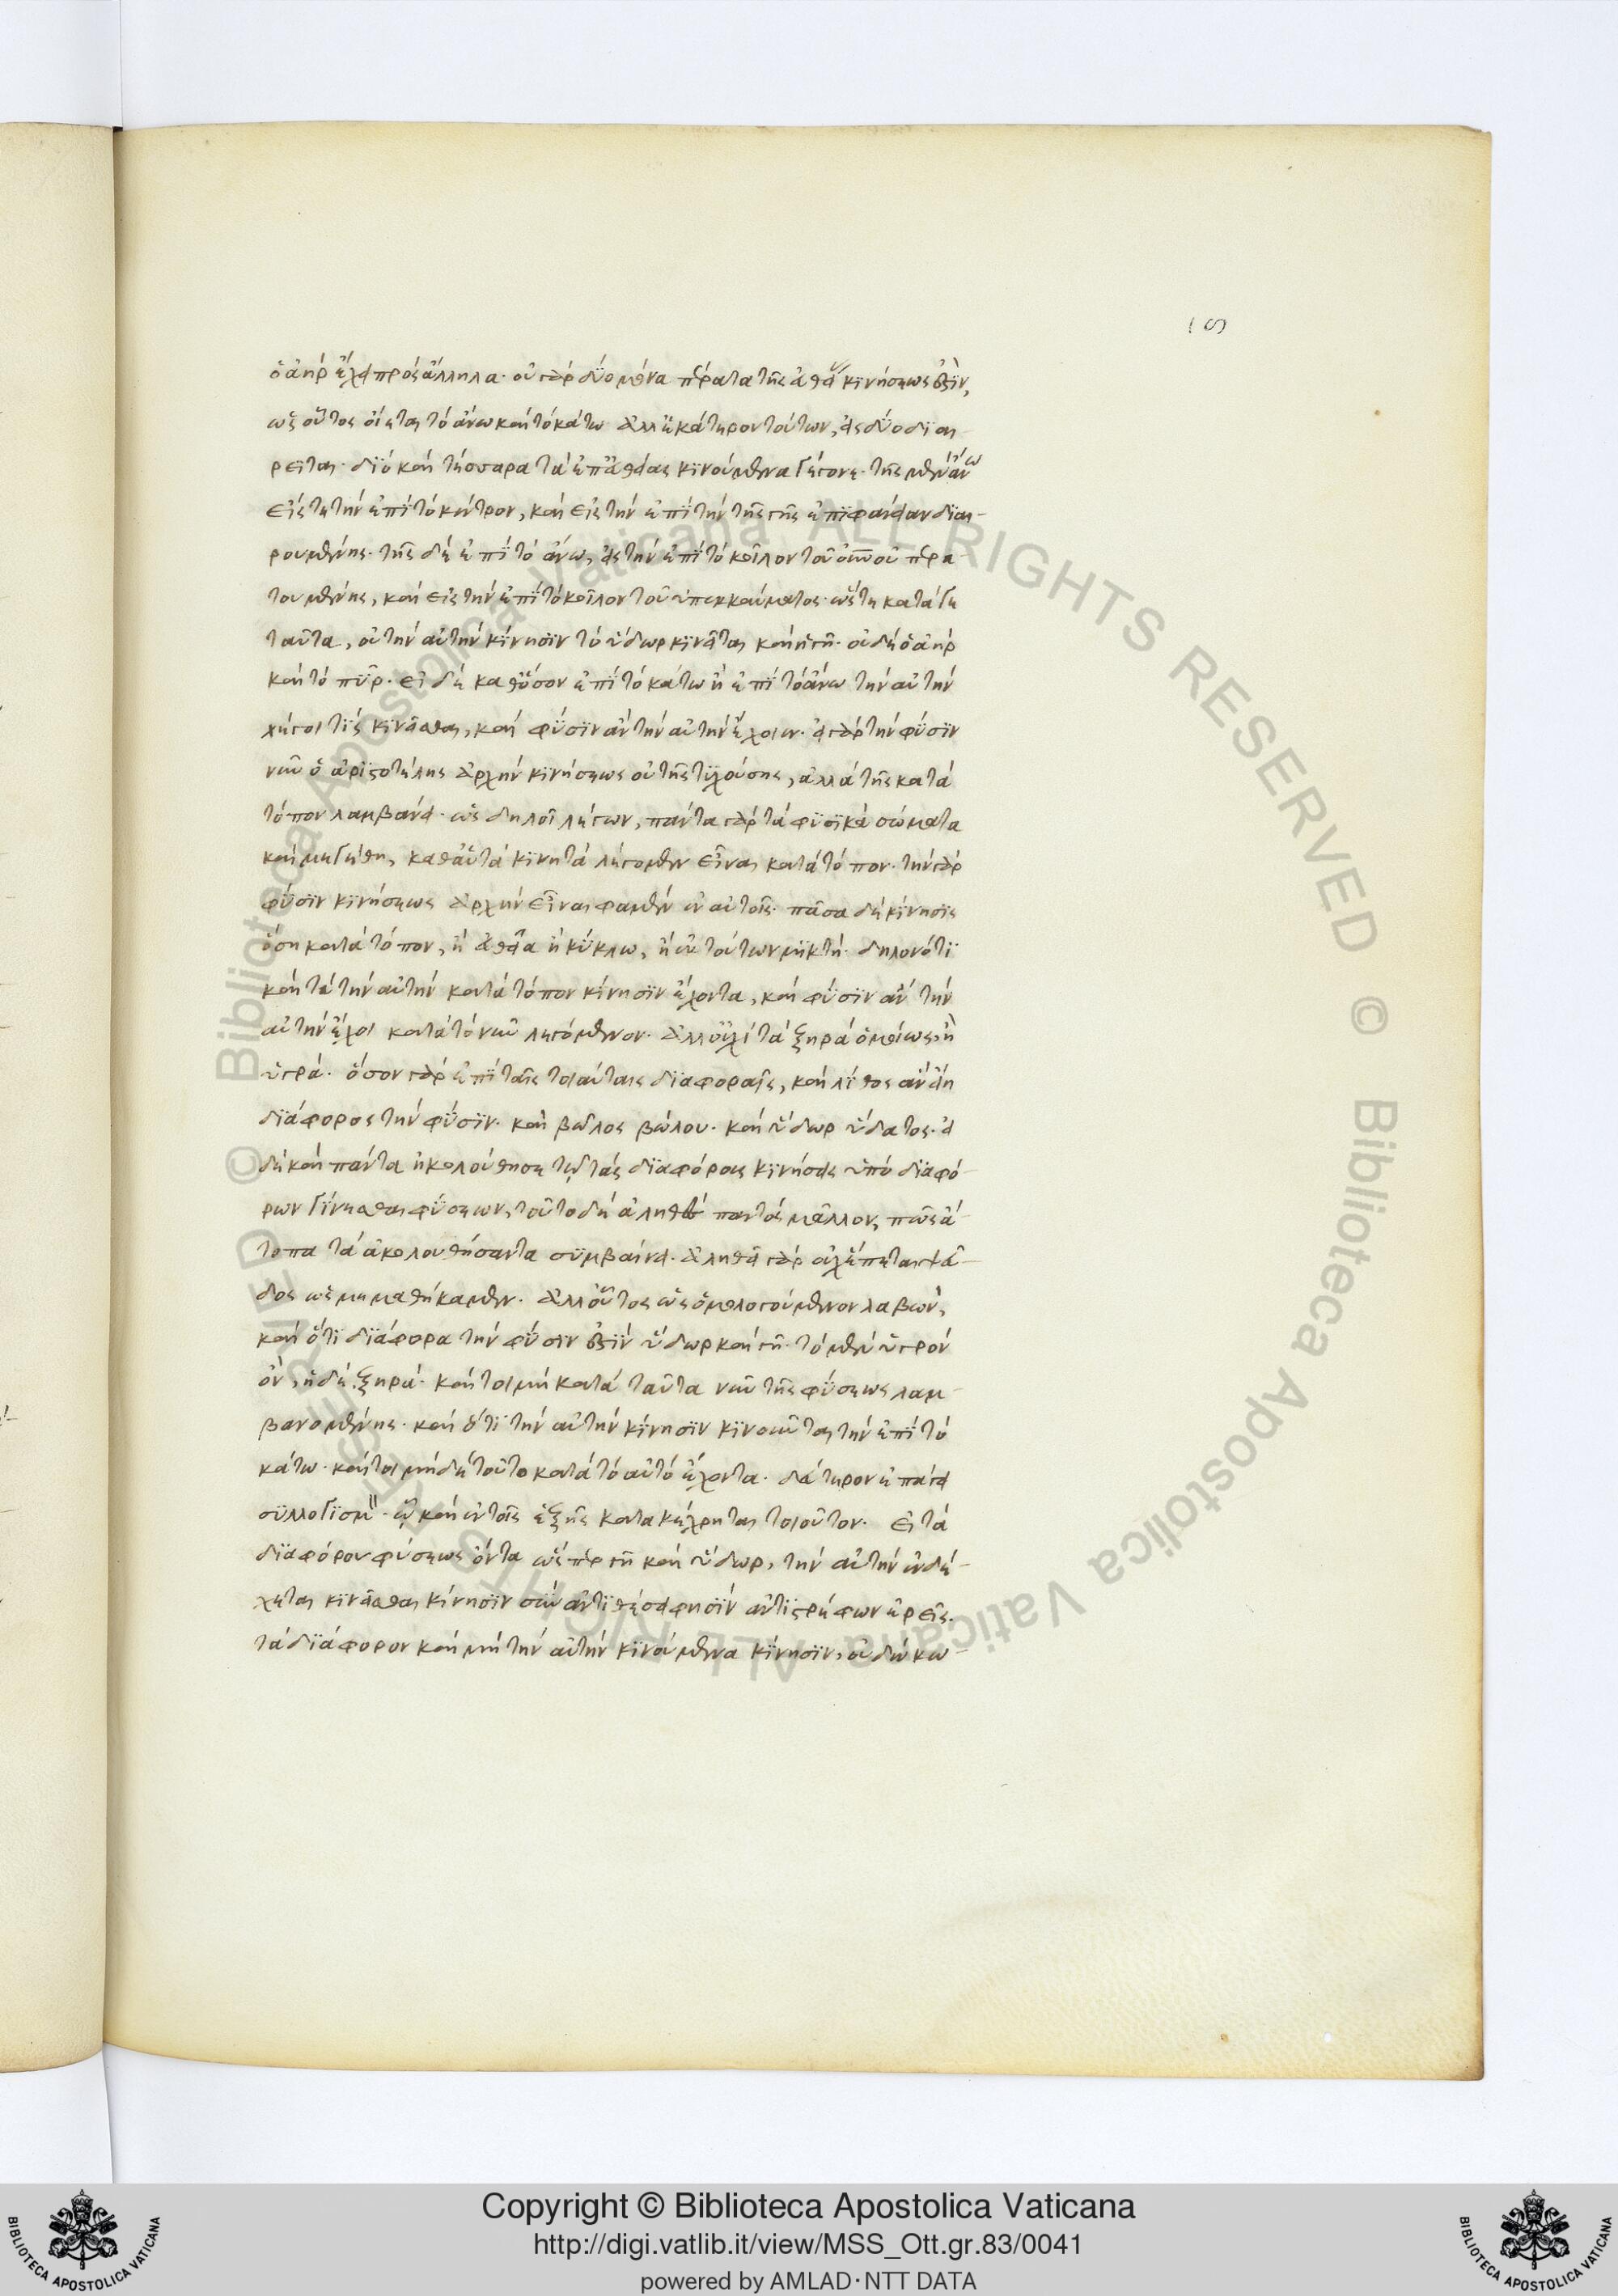 ιϛ
ὁ ἀὴρ ἔχει πρὸς ἄλληλα· οὐ γὰρ δύο μόνα πέρατα τῆς εὐθείας κινήσεώς ἐστιν,
ὡς οὗτος οἴεται τὸ ἄνω καὶ τὸ κάτω ἀλλ' ἑκάτερον τούτων, εἰς δύο διαι-
ρεῖται· διὸ καὶ τέσσαρα τὰ ἐπ' εὐθείας κινούμενα γέγονε· τῆς μὲν
εἴς τε τὴν ἐπὶ τὸ κέντρον, καὶ εἰς τὴν ἐπὶ τὴν τῆς γῆς ἐπιφάνειαν διαι-
ρουμένης· τῆς δὲ ἐπὶ τὸ ἄνω, εἰς τὴν ἐπὶ τὸ κοῖλον τοῦ οὐνοῦ περα-
τουμένης, καὶ εἰς τὴν ἐπὶ τὸ κοῖλον τοῦ ὑπεκκαύματος· ὥστε κατά γε
ταῦτα, οὐ τὴν αὐτὴν κίνησιν τὸ ὕδωρ κινεῖται καὶ ἡ γῆ· οὐδὲ ὁ ἀὴρ
καὶ τὸ πῦρ· εἰ δὲ καθόσον ἐπὶ τὸ κάτω ἢ ἐπὶ τὸ ἄνω τὴν αὐτὴν
λέγοι τις κινεῖσθαι, καὶ φύσιν ἂν τὴν αὐτὴν ἔχοιεν· εἰ γὰρ τὴν φύσιν
νῦν ὁ ἀριστοτέλης ἀρχὴν κινήσεως οὐ τῆς τυχούσης, ἀλλὰ τῆς κατὰ
τόπον λαμβάνει· ὡς δηλοῖ λέγων, πάντα γὰρ τὰ φυσικὰ σώματα
καὶ μεγέθη, καθ' αὑτὰ κινητὰ λέγομεν εἶναι κατὰ τόπον· τὴν γὰρ
φύσιν κινήσεως ἀρχὴν εἶναι φαμὲν ἐν αὐτοῖς· πᾶσα δὲ κίνησις
ὅση κατὰ τόπον, ἢ εὐθεῖα ἢ κύκλω, ἢ ἐκ τούτων μικτή· δηλονότι
καὶ τὰ τὴν αὐτὴν κατὰ τόπον κίνησιν ἔχοντα, καὶ φύσιν ἂν τὴν
αὐτὴν ἔχοι κατὰ τὸ νῦν λεγόμενον· ἀλλ' οὐχὶ τὰ ξηρὰ ὁμοίως, ἢ
ὑγρά· ὅσον γὰρ ἐπὶ ταῖς τοιαύταις διαφοραῖς, καὶ λίθος ἂν εἴη
διάφορος τὴν φύσιν· καὶ βῶλος βώλου· καὶ ὕδωρ ὕδατος· εἰ
δὲ καὶ πάντα ἠκολούθησε τῷ τὰς διαφόρους κινήσεις ὑπὸ διαφό-
ρων γίνεσθαι φύσεων, τοῦτο δὲ ἀληθὲς παντὸς μᾶλλον, πῶς ἄ-
τοπα τὰ ἀκολουθήσαντα συμβαίνει· ἀληθεῖ γὰρ οὐχ ἕπεται ψεῦ-
δος ὡς μεμαθήκαμεν· ἀλλ' οὗτος ὡς ὁμολογούμενον λαβών,
καὶ ὅτι διάφορα τὴν φύσιν ἐστὶν ὕδωρ καὶ γῆ· τὸ μὲν ὑγρὸν
ὄν, ἡ δὲ ξηρά· καίτοι μὴ κατὰ ταῦτα νῦν τῆς φύσεως λαμ-
βανομένης· καὶ ὅτι τὴν αὐτὴν κίνησιν κινοῦνται τὴν ἐπὶ τὸ
κάτω· καίτοι μηδὲ τοῦτο κατὰ τὸ αὐτὸ ἔχοντα· δεύτερον ἐπάγει
συλλογισμὸν· ᾧ καὶ ἐν τοῖς ἑξῆς κατακέχρηται τοιοῦτον· Εἰ τὰ
διαφόρου φύσεως ὄντα ὥσπερ γῆ καὶ ὕδωρ, τὴν αὐτὴν ἐνδέ-
χεται κινεῖσθαι κίνησιν σὺν ἀντιθέσει φησὶν ἀντιστρέφων ἐρεῖς·
τὰ διάφορον καὶ μὴ τὴν αὐτὴν κινούμενα κίνησιν, οὐδὲν κω-
Copyright © Biblioteca Apostolica Vaticana
http://digi.vatlib.it/view/MSS_Ott.gr.83/0041
powered by AMLAD·NTT DATA